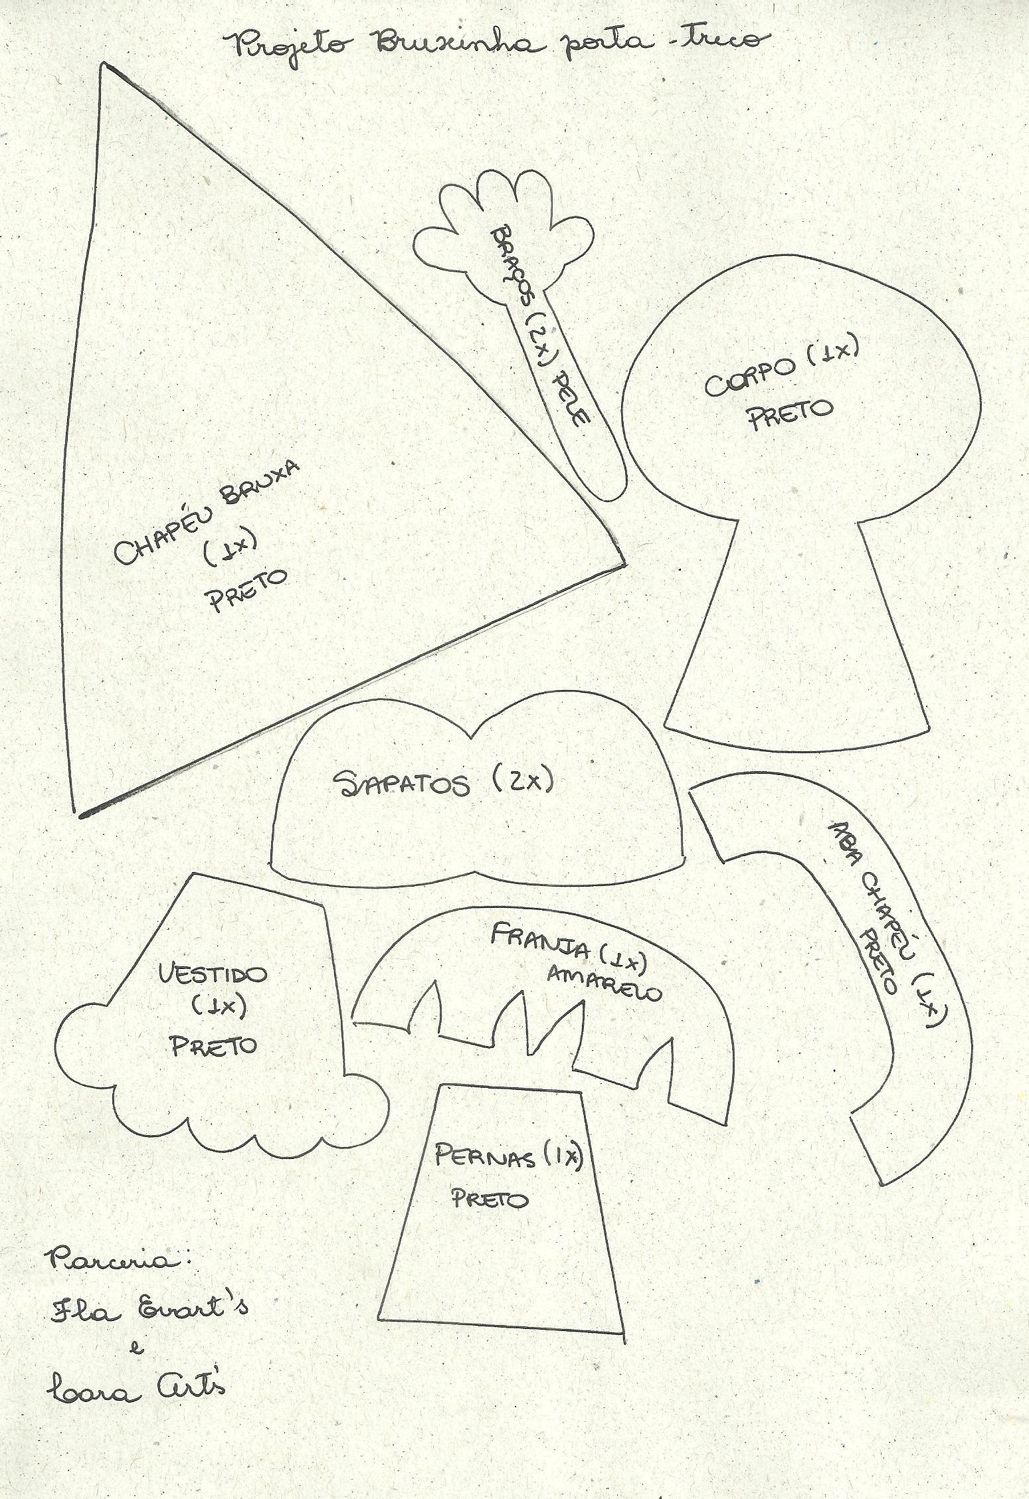 Projeto Bruxinha porta-treco
BRAÇOS (2X) PELE
CORPO (1X)
PRETO
CHAPÉU BRUXA
(1X)
PRETO
SAPATOS (2X)
ABA CHAPÉU (1X)
PRETO
FRANJA (1X)
AMARELO
VESTIDO
(1X)
PRETO
PERNAS (1X)
PRETO
Parceria:
Fla Evart's
e
Cora Art's